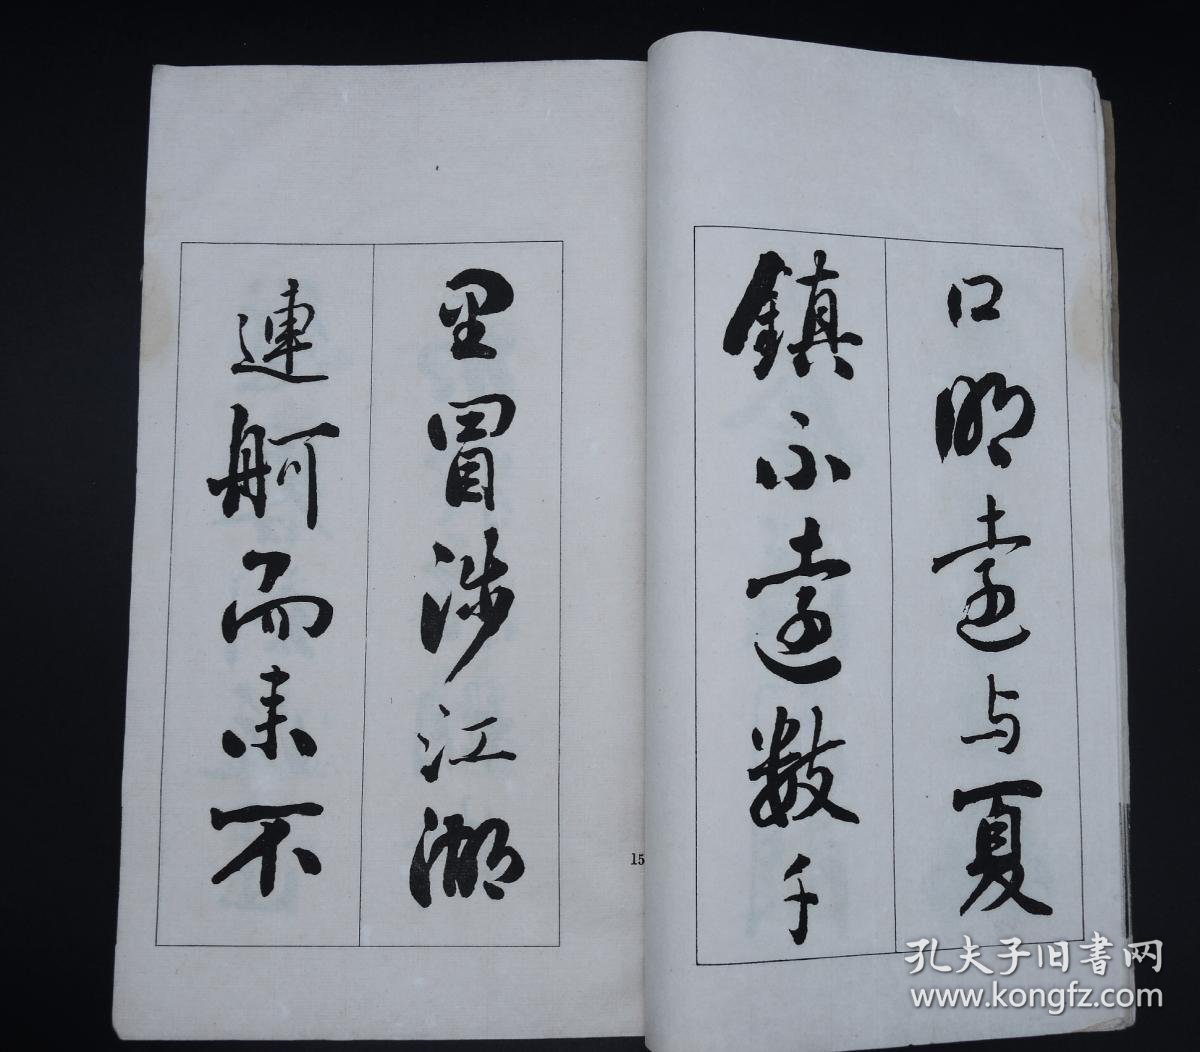 口明遠与夏
鎮不遠數千
里冒涉江湖
連舸而来不
15
孔夫子旧書网
www.kongfz.com